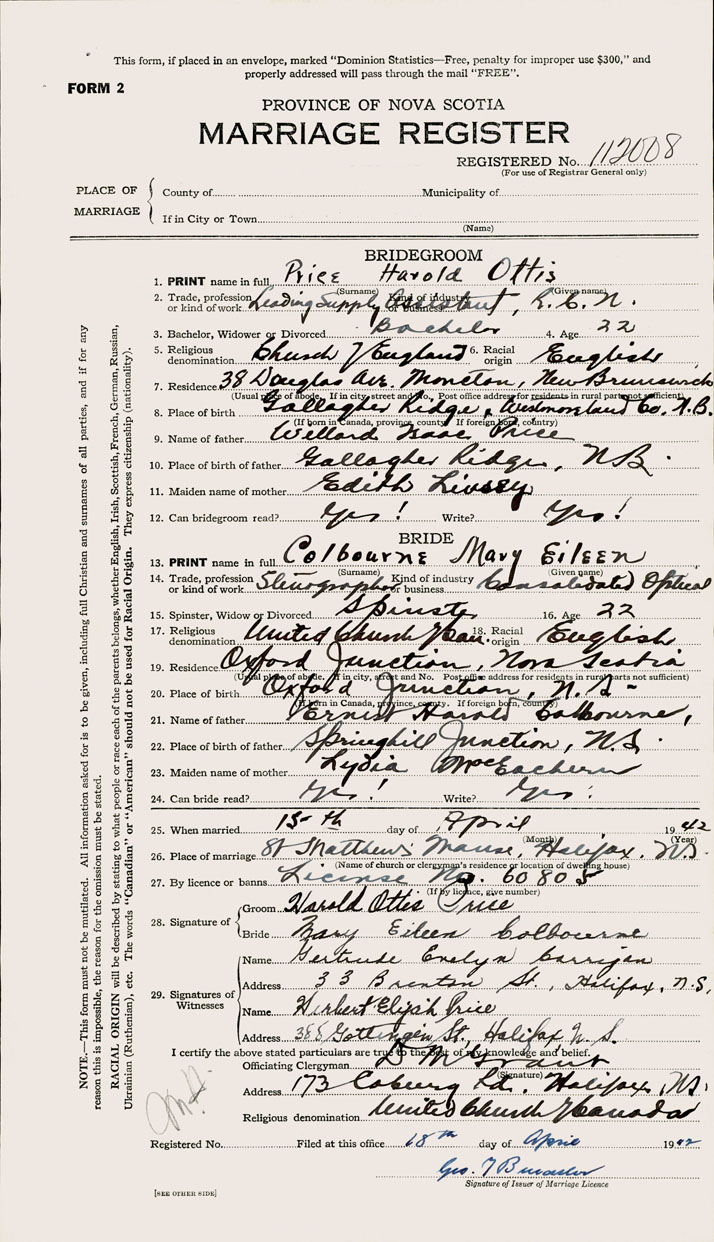 This form, if placed in an envelope, marked "Dominion Statistics—Free, penalty for improper use $300," and
properly addressed will pass through the mail "FREE".
FORM 2
PROVINCE OF NOVA SCOTIA
MARRIAGE REGISTER
REGISTERED No. 112008
(For use of Registrar General only)
PLACE OF MARRIAGE
County of Municipality of
If in City or Town
(Name)
BRIDEGROOM
1. PRINT name in full Price Harold Ottis
(Surname) (Given name)
2. Trade, profession or kind of work Leading Supply Assistant, R.C.N. Kind of industry or business
3. Bachelor, Widower or Divorced Bachelor 4. Age 22
5. Religious denomination Church of England 6. Racial origin English
7. Residence 38 Douglas Ave. Moncton, New Brunswick
(Usual place of abode. If in city, street and No. Post office address for residents in rural parts not sufficient)
8. Place of birth Gallagher Ridge, Westmoreland Co. N.B.
(If born in Canada, province, county. If foreign born, country)
9. Name of father Willard Isaac Price
10. Place of birth of father Gallagher Ridge, N.B.
11. Maiden name of mother Edith Livsey
12. Can bridegroom read? Yes! Write? Yes!
BRIDE
13. PRINT name in full Colbourne Mary Eileen
(Surname) (Given name)
14. Trade, profession or kind of work Stenographer Kind of industry or business Consolidated Optical
15. Spinster, Widow or Divorced Spinster 16. Age 22
17. Religious denomination United Church of Can. 18. Racial origin English
19. Residence Oxford Junction, Nova Scotia
(Usual place of abode. If in city, street and No. Post office address for residents in rural parts not sufficient)
20. Place of birth Oxford Junction, N.S.
(If born in Canada, province, county. If foreign born, country)
21. Name of father Ernest Harold Colbourne,
22. Place of birth of father Springhill Junction, N.S.
23. Maiden name of mother Lydia MacEachern
24. Can bride read? Yes! Write? Yes!
25. When married 15th day of April 1942
(Month) (Year)
26. Place of marriage St Matthews Manse, Halifax, N.S.
(Name of church or clergyman's residence or location of dwelling house)
27. By licence or banns License No. 60805
(If by licence, give number)
28. Signature of Groom Harold Ottis Price
Bride Mary Eileen Colbourne
29. Signatures of Witnesses
Name Gertrude Evelyn Corrigan
Address 33 Brenton St., Halifax, N.S.
Name Herbert Elijah Price
Address 388 Gottingen St, Halifax N.S.
I certify the above stated particulars are true to the best of my knowledge and belief.
Officiating Clergyman
(Signature)
Address 173 Coburg Rd. Halifax, N.S.
Religious denomination United Church of Canada
Registered No. Filed at this office 18th day of April 1942
Geo.
Signature of Issuer of Marriage Licence
[SEE OTHER SIDE]
NOTE.—This form must not be mutilated. All information asked for is to be given, including full Christian and surnames of all parties, and if for any
reason this is impossible, the reason for the omission must be stated.
RACIAL ORIGIN will be described by stating to what people or race each of the parents belongs, whether English, Irish, Scottish, French, German, Russian,
Ukrainian (Ruthenian), etc. The words "Canadian" or "American" should not be used for Racial Origin. They express citizenship (nationality).